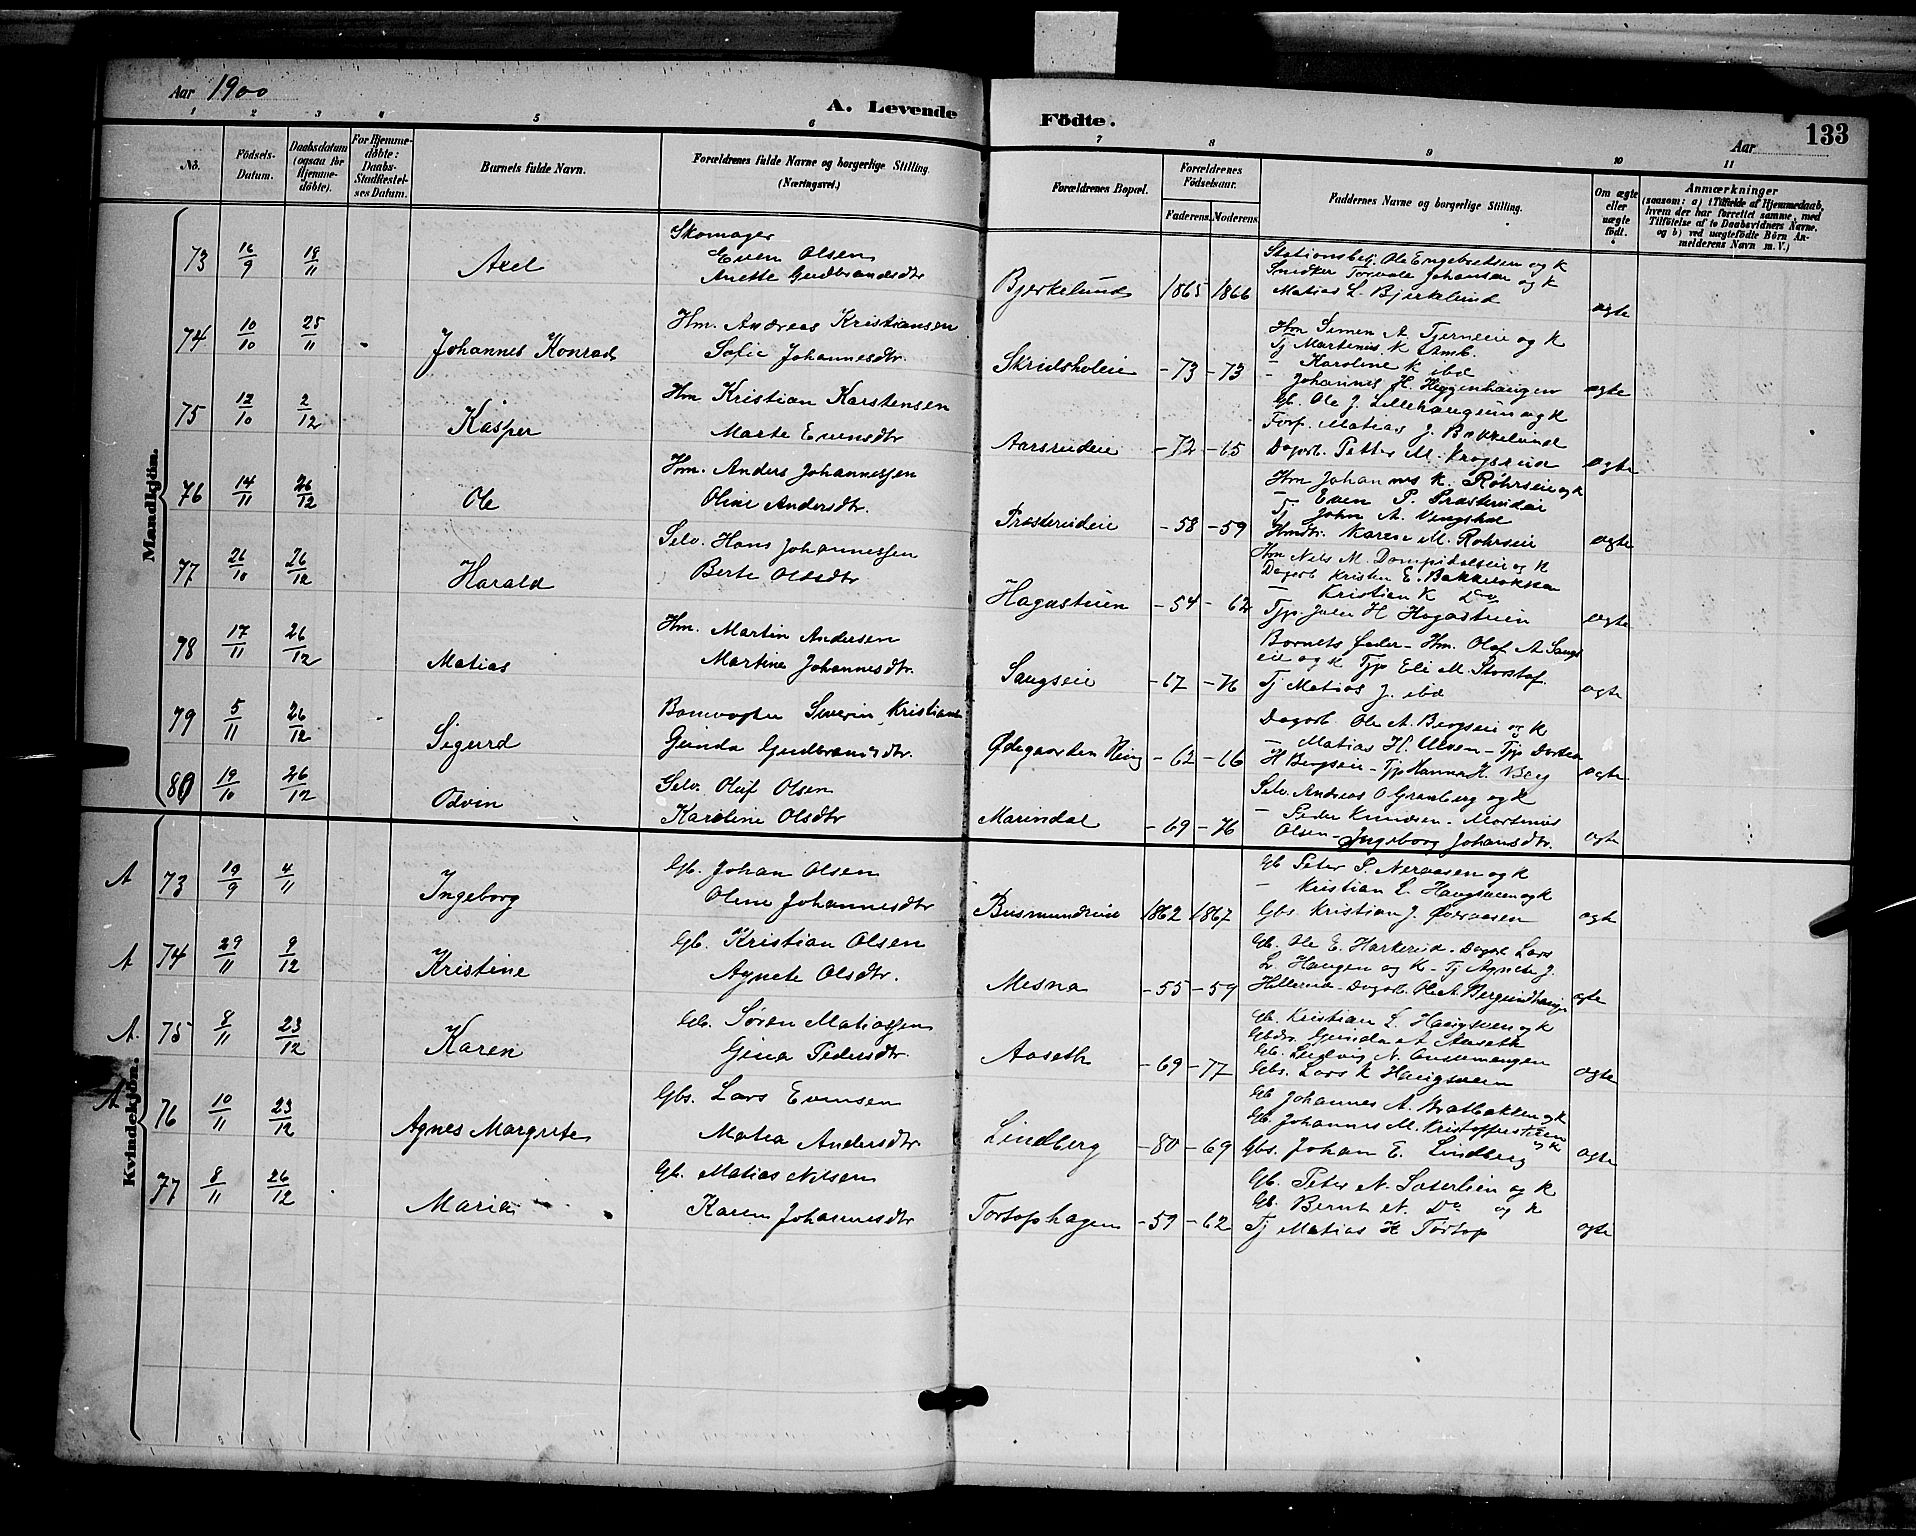 Aar 1900
A. Levende Födte.
Aar 133
1 2 3 4 5 6 7 8 9 10 11
No.
Födsels-Datum.
Daabsdatum (ogsaa for Hjemme-döbte).
For Hjemme-döbte: Daabs-Stadfæstelses Datum.
Barnets fulde Navn.
Forældrenes fulde Navne og borgerlige Stilling. (Næringsvei.)
Forældrenes Bopæl.
Forældrenes Födselsaar.
Faderens. Moderens.
Faddernes Navne og borgerlige Stilling.
Om ægte eller uægte födt.
Anmærkninger
(saasom: a) i Tilfælde af Hjemmedaab, hvem der har forrettet samme, med Tilföielse af to Daabsvidners Navne, og b) ved uægtefödte Börn Anmelderens Navn m. V.)
Mandkjön.
73 16/9 18/11 Axel
Skomager
Even Olsen
Anette Gudbrandsdtr
Bjerkelund 1865 1866
Stationsbetj. Ole Engebretsen og K
Snedker Torvald Johansen og K
Matias L. Bjerkelund
ægte
74 10/10 25/11 Johannes Konrad
Hm. Andreas Kristiansen
Sofie Johannesdtr.
-73 -73
Hm Simen A. Tjerneeie og K
Tj Martenius K Amb.
- Karoline K ibd
- Johannes H. Heggenhaugen
ægte
75 12/10 2/12 Kasper
Hm Kristian Karstensen
Marte Evensdtr
Aarsrudeie -72 -65
Gb. Ole J. Lillehaugum og K
Torp. Matias J. Bakkelund
Dagarb. Petter M. Krogsrud
ægte
76 14/11 26/12 Ole
Hm. Anders Johannessen
Oline Andersdtr.
Præsterudeie -58 -59
Hm Johannes K. Röhrseie og K
- Even P. Præsterudeie
Tj. John A.
Hmdtr. Karen M. Rohrseie
ægte
77 26/10 26/12 Harald
Selv. Hans Johannessen
Berte Olesdtr
Hagastuen -54 -62
Hm Nels M.
Dagarb Kristen E.
- Kristian K Do
Tjp. Julie H Hagastuen
ægte
78 17/11 26/12 Matias
Hm. Martin Andersen
Martine Johannesdtr.
Saugseie -67 -76
Barnets Fader - Hm. Olaf A Saugs
eie og K Tjp Eli M. Storstof.
Tj Matias J. ibd
ægte
79 5/11 26/12 Sigurd
Banevogter Severin Kristians
Gunda Gudbrandsdtr.
Ødegaarden Ring -62 -66
Dagarb. Ole A. Bergseie og K
- Matias H. Ulven - Tjp Dortea
H Bergseie - Tjp Hanna H. Berg
ægte
80 19/10 26/12 Odvin
Selv. Oluf Olsen
Karoline Olsdtr
Mariendal -69 -76
Selv. Andreas O Granberg og K
- Peder Knudsen - Martenius
Olsen - Ingeborg Johansdtr.
ægte
Kvindekjön.
A 73 19/9 4/11 Ingeborg
Gb. Johan Olsen
Oline Johannesdtr
Busmundrud 1862 1867
Gb Peter P. Nervaasen og K
- Kristian L. Haugsveen og K
Gbs. Kristian J. Øveraasen
ægte
A 74 29/11 9/12 Kristine
Gb. Kristian Olsen
Agnete Olsdtr.
Mesna -55 -59
Gb. Ole E. Harkerud - Dagarb Lars
L. Haugen og K - Tj Agnete J.
Hellerud - Dagarb. Ole A. Bergundhaugen
ægte
A. 75 8/11 23/12 Karen
Gb. Søren Matiassen
Gina Pedersdtr.
Aaseth -69 -77
Gb. Kristian L. Haugsveen og K
Gbdtr. Gunda A Aaseth
Gb. Ludvig N.
Gbs. Lars K Haugsveen
ægte
A 76 10/11 23/12 Agnes Margrete
Gbs. Lars Evensen
Matea Andersdtr
Lindberg -80 -69
Gb Johannes A. Bratbakken og K
Gb. Johannes M. Kristofferstuen og K
Gbs. Johan E. Lindberg
ægte
77 8/11 26/12 Maria
Gb. Matias Nilsen
Karen Johannesdtr
Tortophagen -59 -62
Gb. Peter N. Sæterlien og K
Gb. Bernt N. Do og K
Tj Matias H Tortop
ægte